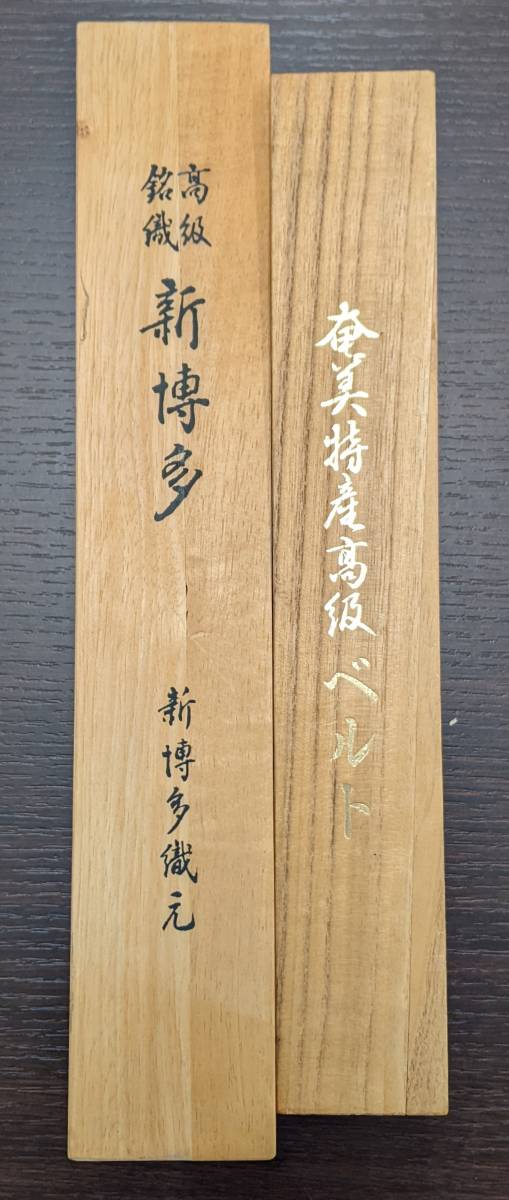 奄美特産高級ベルト
高級
銘織
新博多
新博多織元